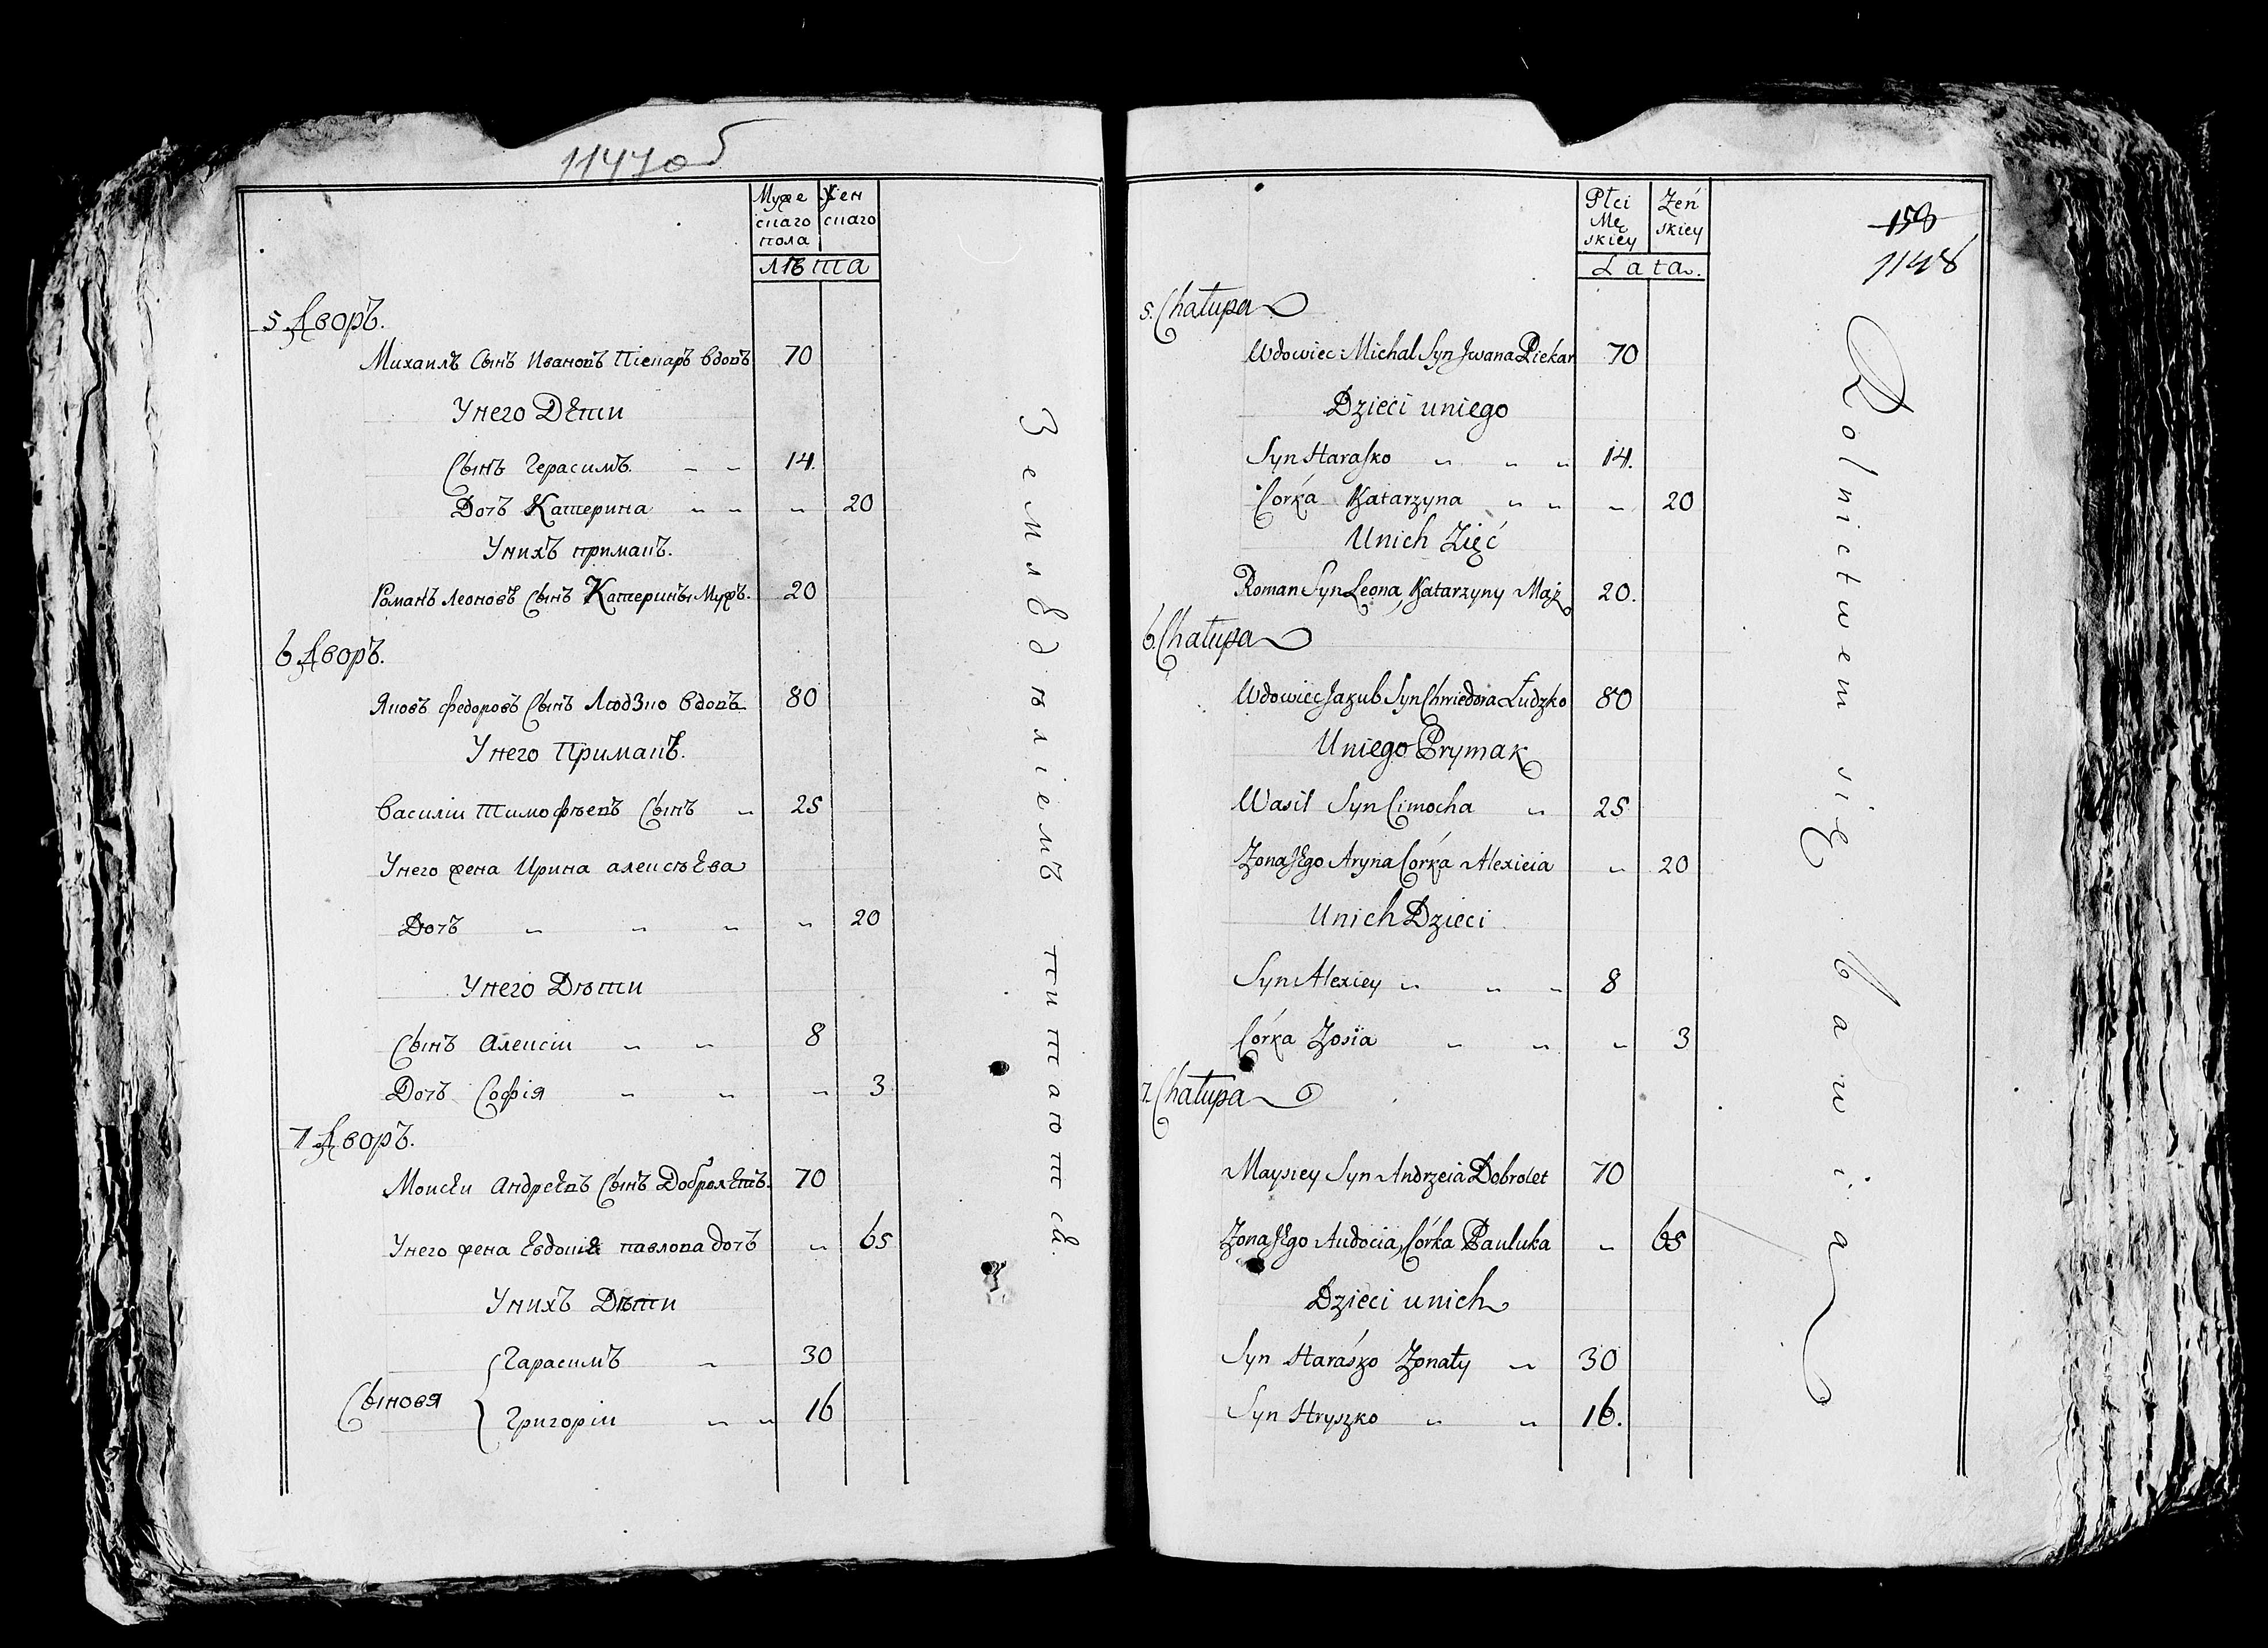 1147об
Муже Жен
скаго скаго
пола
лѣта
5 Дворъ.
Михаилъ Сынъ Ивановъ Пекаръ вдовъ 70
Унего Дѣти
Сынъ Герасимъ. „ „ 14.
Дочъ Катерина „ „ „ 20
Унихъ примакъ.
Романъ Леоновъ Сынъ Катерины Мужъ. 20
6 Дворъ.
Яковъ Федоровъ Сынъ Людзко вдовъ 80
Унего Примакъ.
Василіи Тимофѣевъ Сынъ „ 25
Унего жена Ирина алексѣева
Дочъ „ „ „ „ 20
Унего Дѣти
Сынъ Алексіи „ „ 8
Дочъ Софія „ „ „ 3
7 Дворъ.
Моисеи Андреевъ Сынъ Добролетъ. 70
Унего жена Евдокия павлова дочъ „ 65
Унихъ Дѣти
Сыновя
Гарасимъ „ 30
Григоріи „ „ 16
Земледѣліемъ питаютсѧ.
Płci Zeń
Mę skiey
skiey
Lata.
158
1148
5. Chałupa
Wdowiec Michal Syn Jwana Piekar 70
Dzieci uniego
Syn Harasko „ „ „ 14.
Corka Katarzyna „ „ „ 20
Unich Zięć
Roman Syn Leona, Katarzyny Mąż 20.
6. Chałupa
Wdowiec Jakub Syn Chwiedora Ludzko 80
Uniego Prymak
Wasil Syn Cimocha „ 25
Zona Jego Aryna Corka Alexieia „ 20
Unich Dzieci
Syn Alexiey „ „ „ 8
Córka Zosia „ „ „ 3
7. Chałupa
Maysiey Syn Andrzeia Dobrolet 70
Zona Jego Audocia, Córka Pauluka „ 65
Dzieci unich
Syn Harasko Zonaty „ 30
Syn Hryszko „ „ 16.
Rolnictwem się bawią